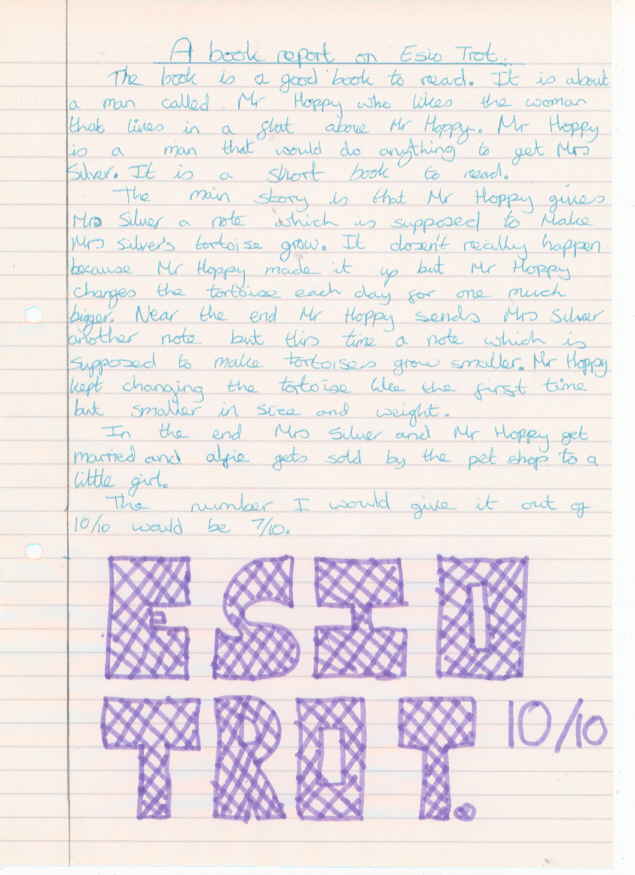 A book report on Esio Trot.
The book is a good book to read. It is about
a man called Mr Hoppy who likes the woman
that lives in a flat above Mr Hoppy. Mr Hoppy
is a man that would do anything to get Mrs
Silver. It is a short book to read.
The main story is that Mr Hoppy gives
Mrs Silver a note which is supposed to Make
Mrs Silver's tortoise grow. It doesn't really happen
because Mr Hoppy made it up but Mr Hoppy
changes the tortoise each day for one much
bigger. Near the end Mr Hoppy sends Mrs Silver
another note but this time a note which is
supposed to make tortoises grow smaller. Mr Hoppy
kept changing the tortoise like the first time
but smaller in size and weight.
In the end Mrs Silver and Mr Hoppy get
married and alfie gets sold by the pet shop to a
little girl.
The number I would give it out of
10/10 would be 7/10.
ESIO
TROT. 10/10